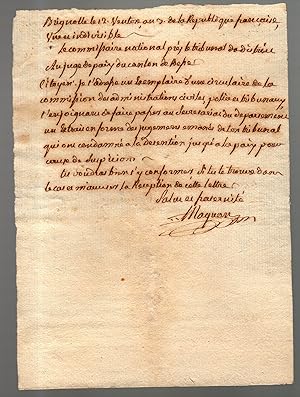 Brignolle le 12 Ventose an 3 de la Republique francaise,
Une et indivisible
Le commissaire national près le tribunal du district
Au juge de paix du canton de
Citoyen je t'adresse un Exemplaire d'une circulaire de la
commission des administrations civiles police et tribunaux
de faire passer au Secretariat du departement
un Extrait en forme des jugemens emanés de ton tribunal
qui ont condamné a la detention jusqu'a la paix pour
cause de Suspicion.
tu voudras bien t'y conformer Si tu te trouve dans
le cas et m'accuser la Reception de cette lettre
Salut et fraternité